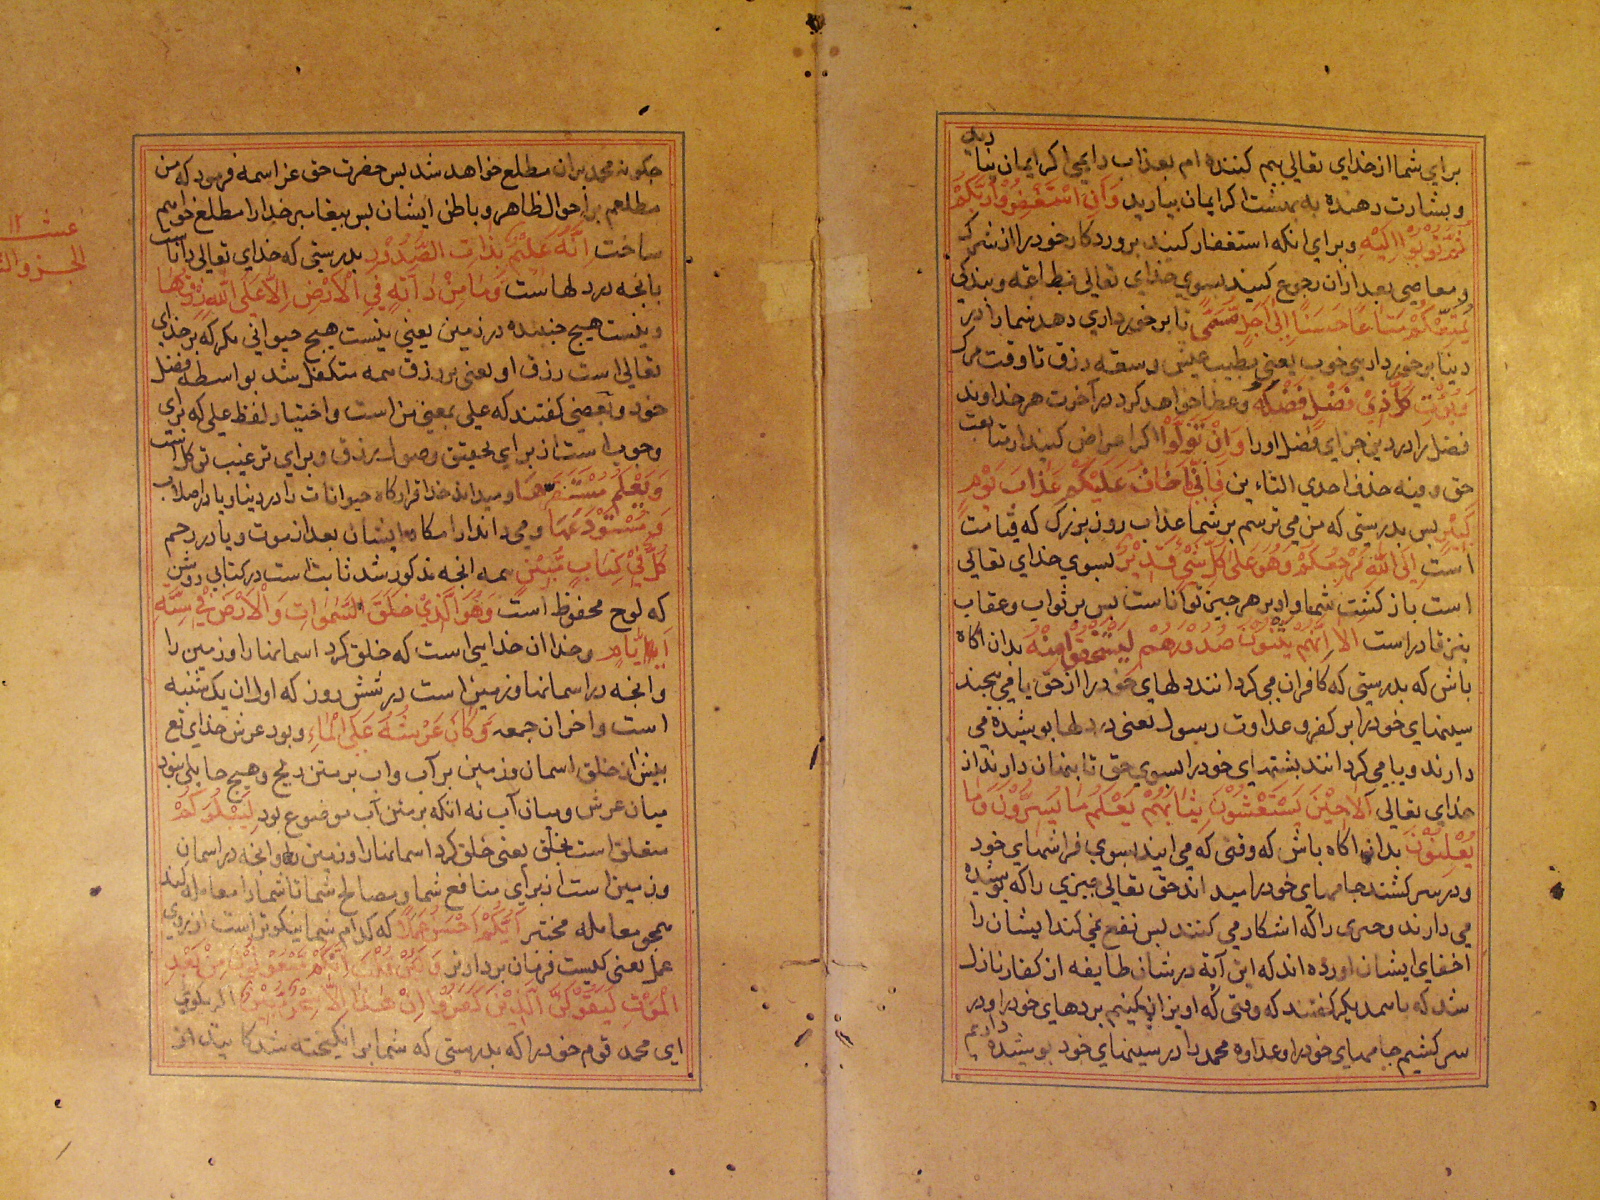 برای شما از خدای تعالی بیم کننده ام بعذاب دایمی اکر ایمان نیارید
و بشارت دهنده به بهشت اکر ایمان بیارید وَاَنِ اسْتَغْفِرُوْا رَبَّكُمْ
ثُمَّ تُوْبُوْا اِلَيْهِ و برای انکه استغفار کنید پروردکار خود را از شرک
و معاصی بعد ازان رجوع کنید بسوی خدای تعالی بطاعته و بندکی
يُمَتِّعْكُمْ مَتَاعًا حَسَنًا اِلٰى اَجَلٍ مُّسَمًّى تا برخورداری دهد شما را در
دنیا برخورداریی خوب یعنی بطیب عیش و سعه رزق تا وقت مرک
وَيُؤْتِ كُلَّ ذِيْ فَضْلٍ فَضْلَهُ و عطا خواهد کرد در آخرت هر خداوند
فضل را در دین جزای فضل او را وَاِنْ تَوَلَّوْا اکر اعراض کنند از متابعت
حق و فیه حذف احدی التائین فَاِنِّيْ اَخَافُ عَلَيْكُمْ عَذَابَ يَوْمٍ
كَبِيْرٍ بس بدرستی که من می ترسم بر شما عذاب روز بزرک که قیامت
است اِلَى اللّٰهِ مَرْجِعُكُمْ وَهُوَ عَلٰى كُلِّ شَيْءٍ قَدِيْرٌ بسوی خدای تعالی
است باز کشت شما و او بر هر جیز توانا ست بس بر ثواب و عقاب
نیز قادر است اَلَا اِنَّهُمْ يَثْنُوْنَ صُدُوْرَهُمْ لِيَسْتَخْفُوْا مِنْهُ بدان اکاه
باش که بدرستی که کافران می کردانند دلهای خود را از حق یا می بیجند
سینهای خود را بر کفر و عداوت رسول یعنی در دلها بوشیده می
دارند و یا می کردانند بشتهای خود را بسوی حق تا بنهان دارند از
خدای تعالی اَلَا حِيْنَ يَسْتَغْشُوْنَ ثِيَابَهُمْ يَعْلَمُ مَا يُسِرُّوْنَ وَمَا
يُعْلِنُوْنَ بدان اکاه باش که وقتی که می ایند بسوی فراشهای خود
و در سر کشند جامهای خود را میداند حق تعالی جیزی را که بوشیده
می دارند و جیزی را که اشکار می کنند بس نفع نمی کند ایشان را
اخفای ایشان اورده اند که این آیة در شان طایفه از کفار نازل
شد که با همدیکر کفتند که وقتی که اویزان کنیم بردهای خود را و در
سر کشیم جامهای خود را و عداوة محمد را در سینهای خود بوشیده داریم
جکونه محمد بران مطلع خواهد شد بس حضرت حق عز اسمه فرمود که من
مطلعم بر احوال ظاهر و باطن ایشان بس بیغامبر خدا را مطلع خواهم
ساخت اِنَّهُ عَلِيْمٌ بِذَاتِ الصُّدُوْرِ بدرستی که خدای تعالی داناست
بانجه در دلهاست وَمَا مِنْ دَابَّةٍ فِي الْاَرْضِ اِلَّا عَلَى اللّٰهِ رِزْقُهَا
و نیست هیج جنبنده در زمین یعنی نیست هیج حیوانی مکر که بر خدای
تعالی است رزق او یعنی بر رزق همه متکفل شد بواسطه فضل
خود و بعضی کفتند که علی بمعنی من است و اختیار لفظ علی که برای
وجوب است از برای تحقیق وصول رزق و برای ترغیب توکل است
وَيَعْلَمُ مُسْتَقَرَّهَا و میداند خدا قرارکاه حیوانات را در دنیا و یا در اصلاب
وَمُسْتَوْدَعَهَا و می داند ارامکاه ایشان بعد از موت و یا در رحم
كُلٌّ فِيْ كِتَابٍ مُّبِيْنٍ همه انجه مذکور شد ثابت است در کتابی روشن
که لوح محفوظ است وَهُوَ الَّذِيْ خَلَقَ السَّمٰوَاتِ وَالْاَرْضَ فِيْ سِتَّةِ
اَيَّامٍ و خدا ان خدایی است که خلق کرد اسمانها را و زمین را
و انجه در اسمانها و زمین است در شش روز که اول ان یکشنبه
است و اخر ان جمعه وَكَانَ عَرْشُهُ عَلَى الْمَاءِ و بود عرش خدای تع
بیش از خلق اسمان و زمین بر آب و اب بر متن ریح و هیج حایلی نبود
میان عرش و میان آب نه انکه بر متن آب موضوع بود لِيَبْلُوَكُمْ
متعلق است بخلق یعنی خلق کرد اسمانها را و زمین را و انجه در اسمان
و زمین است از برای منافع شما و مصالح شما تا شما را معامله کند
همجو معامله مختبر اَيُّكُمْ اَحْسَنُ عَمَلًا که کدام شما نیکوتر است از روی
عمل یعنی کیست فرمان بردارتر وَلَئِنْ قُلْتَ اِنَّكُمْ مَبْعُوْثُوْنَ مِنْ بَعْدِ
الْمَوْتِ لَيَقُوْلَنَّ الَّذِيْنَ كَفَرُوْا اِنْ هٰذَا اِلَّا سِحْرٌ مُّبِيْنٌ اکر بکوی
ای محمد قوم خود را که بدرستی که شما برانکیخته شدکانید از